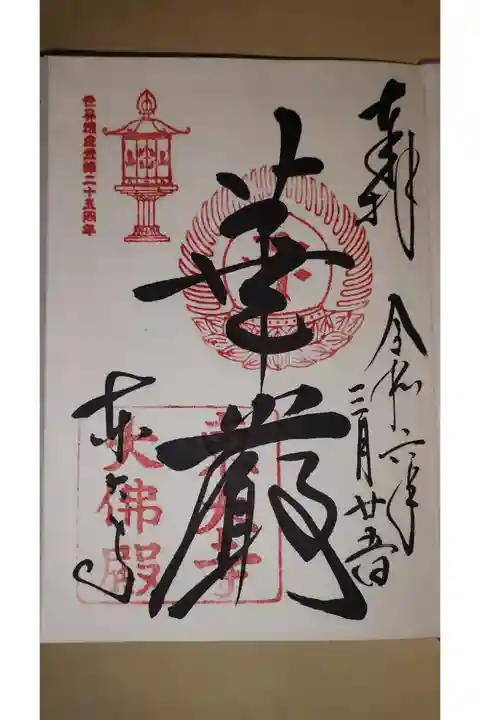 奉拝
令和六年
三月廿五日
華厳
東大寺
世界遺産登録二十五周年
東大寺
大佛殿